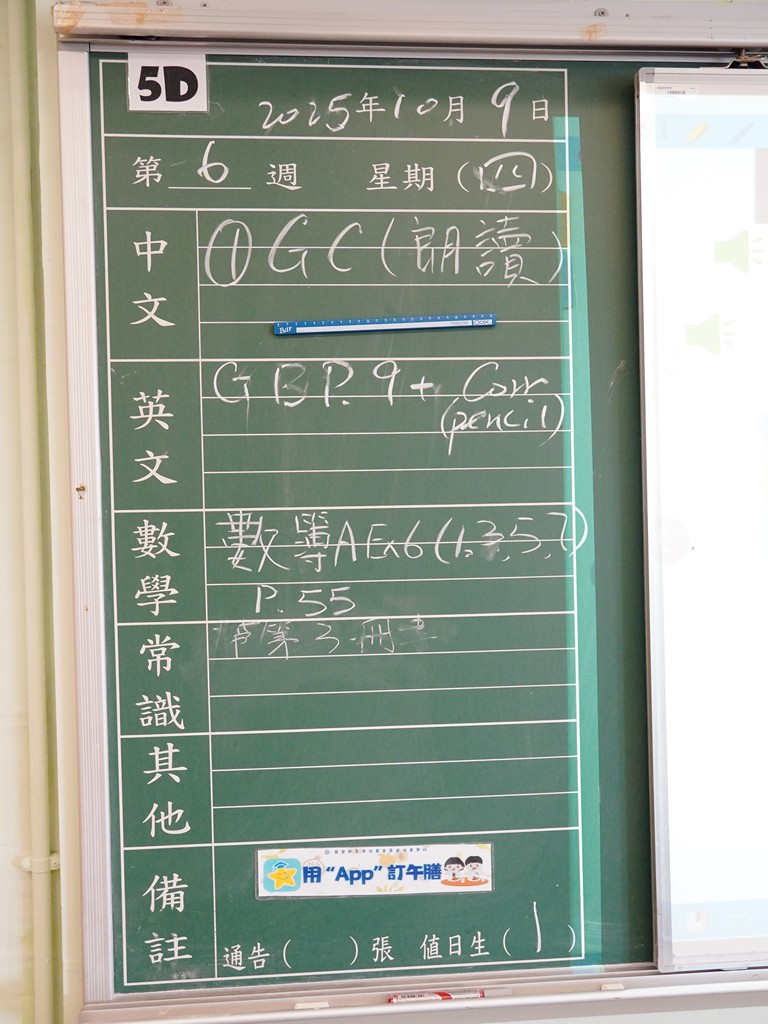 5D
2025年10月9日
第 6 週 星期(四)
中文
① GC (朗讀)
Bar
英文
GB P. 9 + Corr
(pencil)
數學
數簿A Ex6 (1,3,5,7)
P. 55
常識
帶第3冊書
其他
備註
用“App”訂午膳
通告( )張 值日生(1)